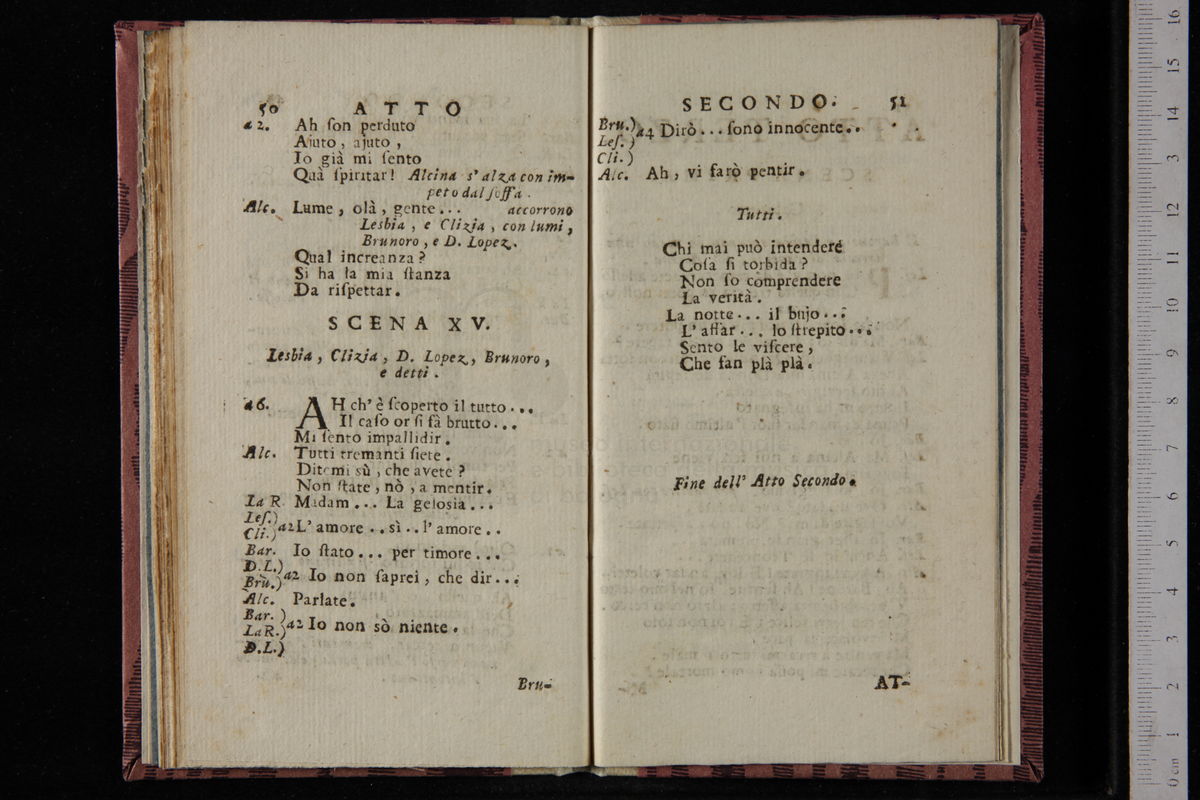 50 ATTO
a 2. Ah ſon perduto
Ajuto, ajuto,
Io già mi ſento
Quà ſpiritar! Alcina s'alza con im-
peto dal ſoffà.
Alc. Lume, olà, gente... accorrono
Lesbia, e Clizia, con lumi,
Brunoro, e D. Lopez.
Qual increanza?
Si ha la mia ſtanza
Da riſpettar.
SCENA XV.
Lesbia, Clizia, D. Lopez, Brunoro,
e detti.
a 6. AH ch'è ſcoperto il tutto...
Il caſo or ſi fà brutto...
Mi ſento impallidir.
Alc. Tutti tremanti ſiete.
Ditemi sù, che avete?
Non ſtate, nò, a mentir.
La R. Madam... La geloſia...
Leſ.)
Cli.) a2 L'amore.. sì.. l'amore..
Bar. Io ſtato... per timore...
D.L.)
Bru.) a2 Io non ſaprei, che dir...
Alc. Parlate.
Bar. )
La R.) a2 Io non sò niente.
D.L.)
Bru-
SECONDO. 51
Bru.) a4 Dirò... ſono innocente..
Leſ. )
Cli. )
Alc. Ah, vi farò pentir.
Tutti.
Chi mai può intendere
Coſa ſi torbida?
Non ſo comprendere
La verità.
La notte... il bujo...
L'affàr... lo ſtrepito...
Sento le viſcere,
Che fan plà plà.
Fine dell' Atto Secondo.
AT-
16
15
14
13
12
11
10
9
8
7
6
5
4
3
2
1
0 cm